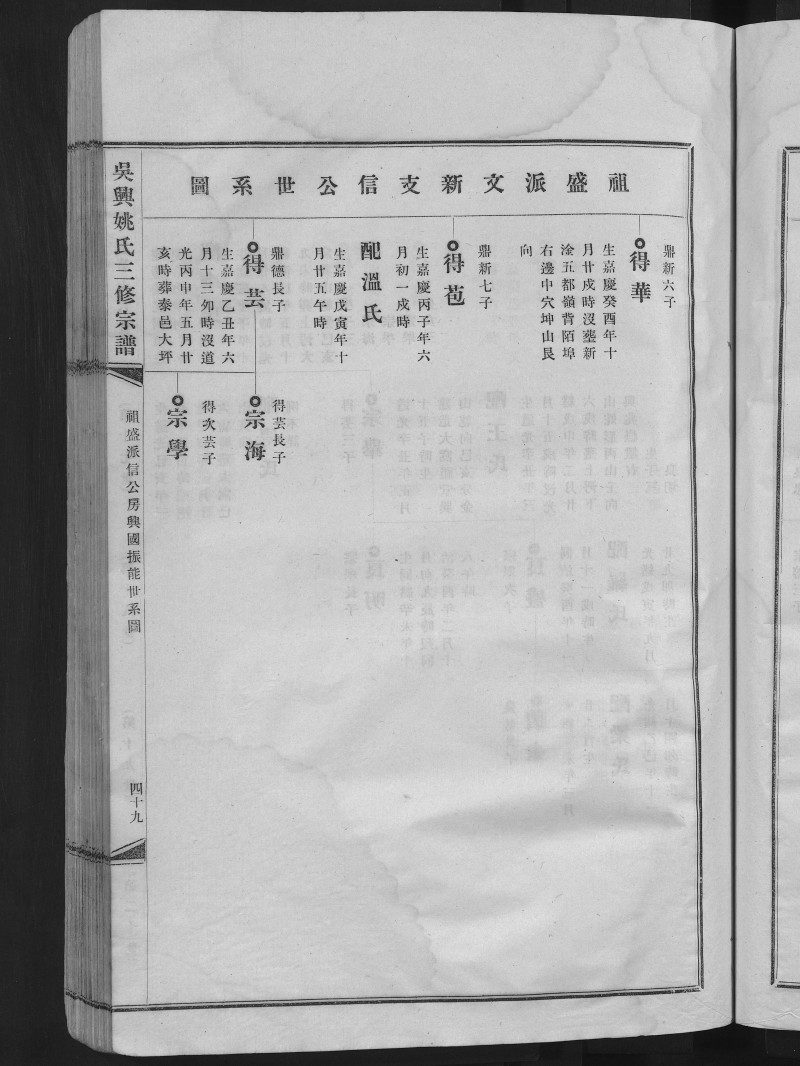 祖盛派文新支信公世系圖
鼎新六子
得華
生嘉慶癸酉年十
月廿戌時沒塟新
淦五都嶺背陌埠
右邊中穴坤山艮
向
鼎新七子
得苞
生嘉慶丙子年六
月初一戍時
配溫氏
生嘉慶戊寅年十
月廿五午時
鼎德長子
得芸
生嘉慶乙丑年六
月十三夘時沒道
光丙申年五月廿
亥時葬泰邑大坪
得芸長子
宗海
得次芸子
宗學
吳興姚氏三修宗譜
祖盛派信公房興國振能世系圖
四十九